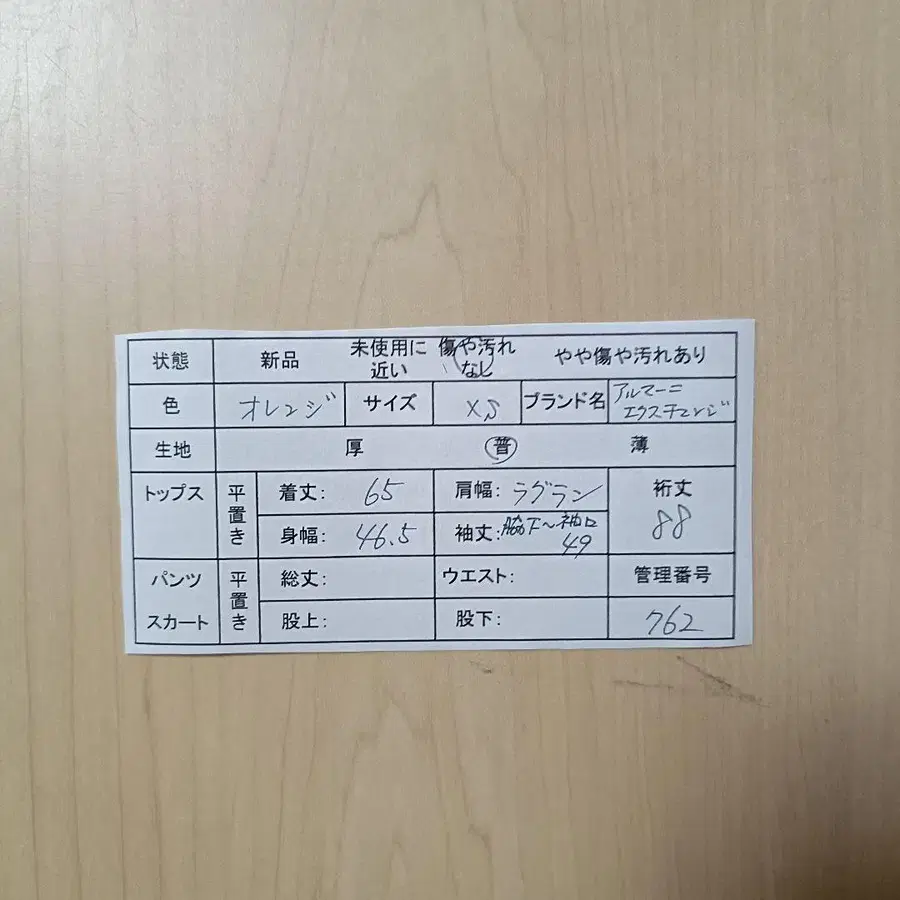 状態 新品 未使用に近い 傷や汚れなし やや傷や汚れあり
色 オレンジ サイズ XS ブランド名 アルマーニエクスチェンジ
生地 厚 普 薄
トップス 平置き 着丈: 65 肩幅: ラグラン 裄丈
身幅: 46.5 袖丈: 脇下〜袖口 49 88
パンツ 平置き 総丈: ウエスト: 管理番号
スカート 股上: 股下: 762